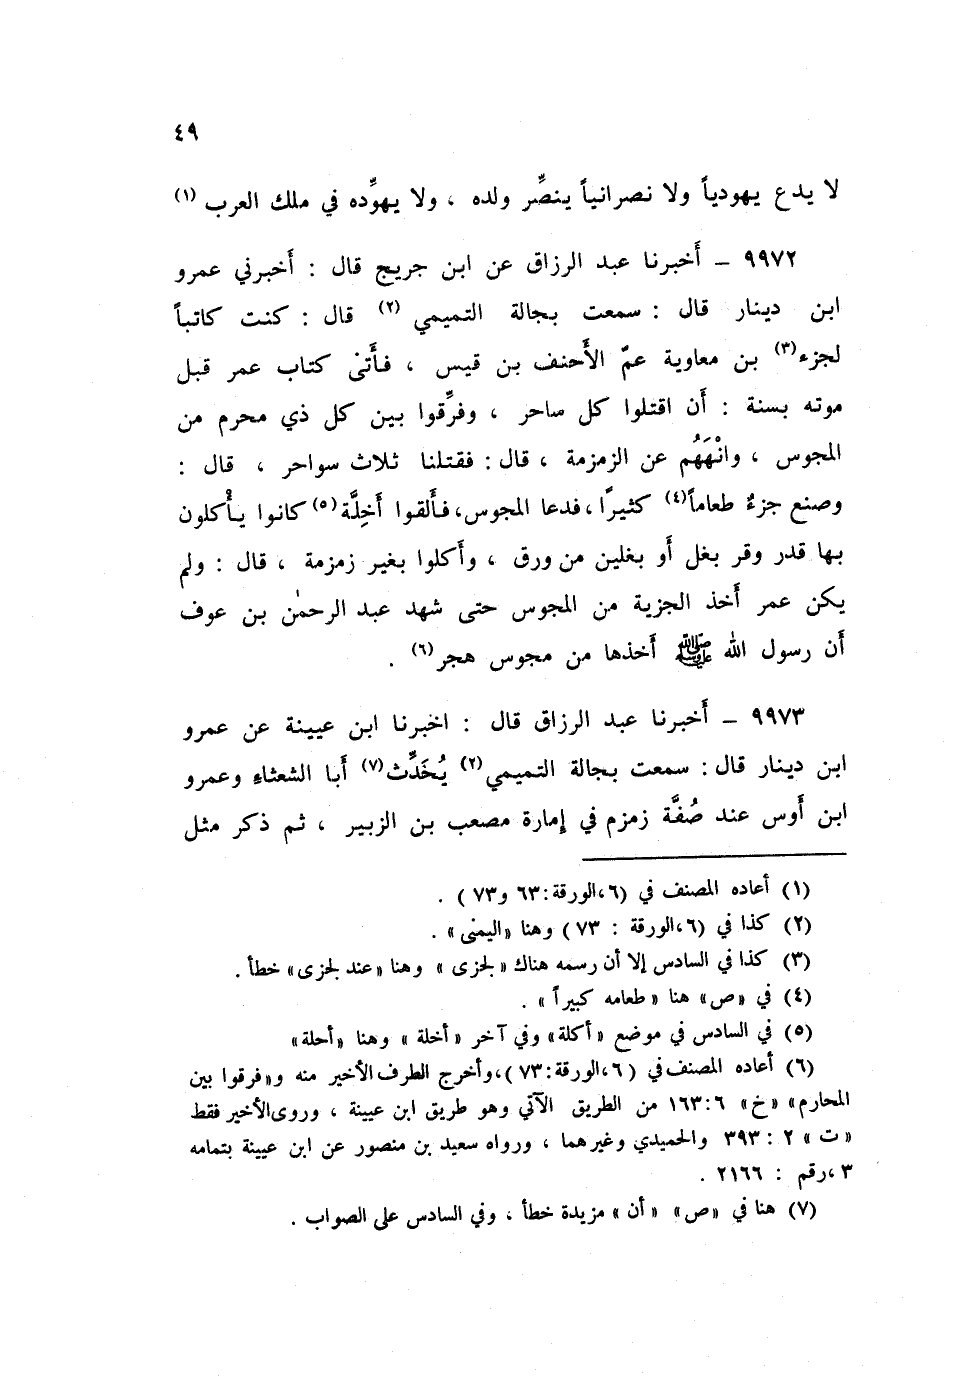 ٤٩
لا يدع يهودياً ولا نصرانياً ينصِّر ولده ، ولا يهوِّده في ملك العرب (١)
٩٩٧٢ – أَخبرنا عبد الرزاق عن ابن جريج قال : أَخبرني عمرو
ابن دينار قال : سمعت بجالة التميمي (٢) قال : كنت كاتباً
لجزء (٣) بن معاوية عمّ الأَحنف بن قيس ، فأَتىٰ كتاب عمر قبل
موته بسنة : أَن اقتلوا كل ساحر ، وفرِّقوا بين كل ذي محرم من
المجوس ، وانْهَهُم عن الزمزمة ، قال : فقتلنا ثلاث سواحر ، قال :
وصنع جزءُ طعاماً (٤) كثيرًا ، فدعا المجوس ، فأَلقوا أَخِلَّة (٥) كانوا يأْكلون
بها قدر وقر بغل أَو بغلين من ورق ، وأَكلوا بغير زمزمة ، قال : ولم
يكن عمر أَخذ الجزية من المجوس حتى شهد عبد الرحمٰن بن عوف
أَن رسول الله ﷺ أَخذها من مجوس هجر (٦) .
٩٩٧٣ – أَخبرنا عبد الرزاق قال : اخبرنا ابن عيينة عن عمرو
ابن دينار قال : سمعت بجالة التميمي (٢) يُحَدِّث (٧) أَبا الشعثاء وعمرو
ابن أَوس عند صُفَّة زمزم في إمارة مصعب بن الزبير ، ثم ذكر مثل
(١) أعاده المصنف في (٦،الورقة:٦٣ و٧٣ ) .
(٢) كذا في (٦،الورقة : ٧٣) وهنا «اليمنى» .
(٣) كذا في السادس إلا أن رسمه هناك «لجزى » وهنا «عند لجزى» خطأ .
(٤) في «ص» هنا «طعامه كبيراً » .
(٥) في السادس في موضع «أكلة» وفي آخر «أخلة » وهنا «أحلة»
(٦) أعاده المصنف في (٦،الورقة:٧٣)،وأخرج الطرف الأخير منه و«فرقوا بين
المحارم» «خ» ٦:١٦٣ من الطريق الآتي وهو طريق ابن عيينة ، وروى الأخير فقط
«ت » ٢ : ٣٩٣ والحميدي وغيرهما ، ورواه سعيد بن منصور عن ابن عيينة بتمامه
٣ ،رقم : ٢١٦٦ .
(٧) هنا في «ص» «أن» مزيدة خطأ ، وفي السادس على الصواب .